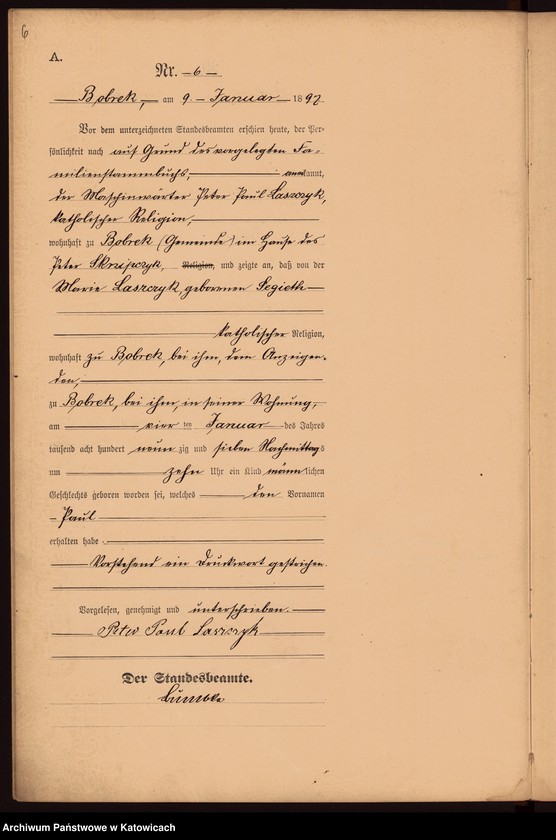 6
A.
Nr. 6
Bobrek, am 9. Januar 1897
Vor dem unterzeichneten Standesbeamten erschien heute, der Per-
sönlichkeit nach auf Grund des vorgelegten Fa-
milienstammbuchs, anerkannt,
der Maschinwärter Peter Paul Laszczyk,
katholischer Religion,
wohnhaft zu Bobrek (Gemeinde) im Hause des
Peter Skrzipczyk, Religion, und zeigte an, daß von der
Marie Laszczyk, geborenen Segieth
katholischer Religion,
wohnhaft zu Bobrek, bei ihm, dem Anzeigen-
den,
zu Bobrek, bei ihm, in seiner Wohnung,
am vier ten Januar des Jahres
tausend acht hundert neun zig und sieben Nachmittags
um zehn Uhr ein Kind männlichen
Geschlechts geboren worden sei, welches den Vornamen
Paul
erhalten habe.
Vorstehend ein Druckwort gestrichen.
Vorgelesen, genehmigt und unterschrieben.
Peter Paul Laszczyk
Der Standesbeamte.
Archiwum Państwowe w Katowicach